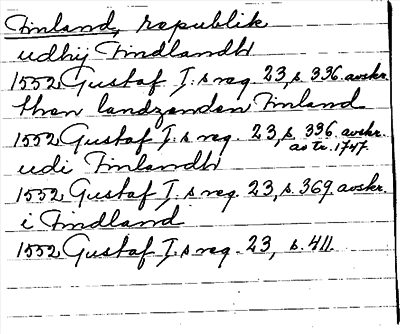 Finland, republik
udhij Findlandh
1552 Gustaf I:s reg. 23, s. 336. avskr.
then landzenden Finland
1552 Gustaf I:s reg. 23, s. 336 avskr.
av tr. 1747.
udi Finlandh
1552 Gustaf I:s reg. 23, s. 369. avskr.
i Findland
1552 Gustaf I:s reg. 23, s. 411.